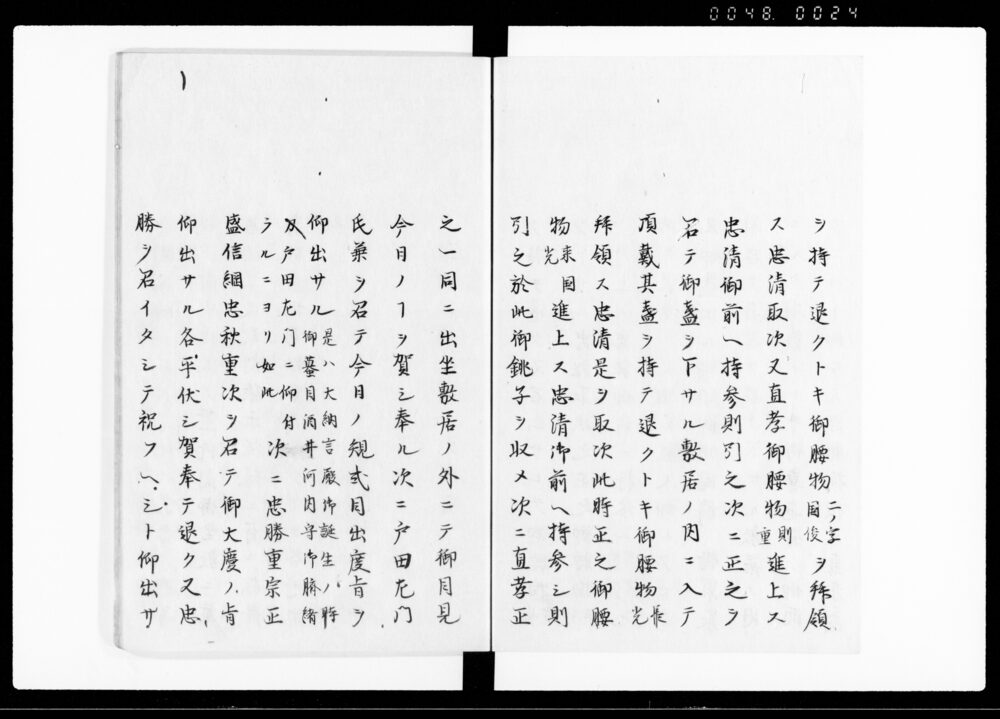 0048. 0024
シ持テ退クトキ御腰物二ノ字国俊ヲ拜領
ス忠清取次又直孝御腰物則重進上ス
忠清御前ヘ持参則引之次ニ正之ヲ
召テ御盞ヲ下サル敷居ノ内ニ入テ
頂戴其盞ヲ持テ退クトキ御腰物長光
拜領ス忠清是ヲ取次此時正之御腰
物来国光進上ス忠清御前ヘ持参シ則
引之於此御銚子ヲ収メ次ニ直孝正
之一同ニ出坐敷居ノ外ニテ御目見
今日ノヿヲ賀シ奉ル次ニ戸田左門
氏兼ヲ召テ今日ノ規式目出度肯ヲ
仰出サル是ハ大納言殿御誕生ノ時御蟇目酒井河内守御臍緒
ハ戸田左門ニ仰付ラルニヨリ如此次ニ忠勝重宗正
盛信綱忠秋重次ヲ召テ御大慶ノ肯
仰出サル各平伏シ賀奉テ退ク又忠
勝ヲ召イタシテ祝フヘシト仰出サ